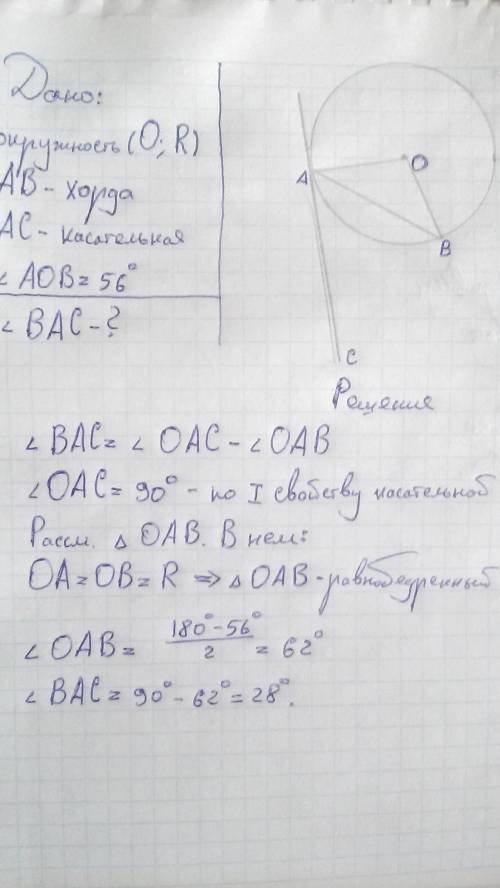 Дано:
окружность (O; R)
AB - хорда
AC - касательная
∠ AOB = 56°
∠ BAC - ?
A
O
B
C
Решение
∠ BAC = ∠ OAC - ∠ OAB
∠ OAC = 90° - по I свойству касательной
Рассм. △ OAB. В нем:
OA = OB = R ⇒ △ OAB - равнобедренный
∠ OAB = (180° - 56°)/2 = 62°
∠ BAC = 90° - 62° = 28°.